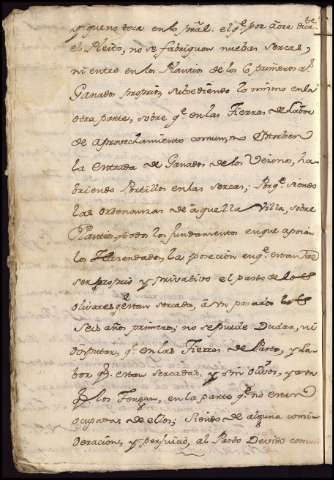 y que no toca en lo pral. el qe. por aora dice
el Pleito, no se fabriquen nuebas sercas,
ni entre en los Plantios de los 6 primeros as
Ganado proprio, subcediendo lo mismo en la
otra parte, sobre qe. en las Tierras de labor
de aprovechamiento comun, no estorben
la entrada de Ganados de los Vecinos, ha
briendo Portillos en las sercas; Porqe. siendo
las ordenanzas de aquella Villa, sobre
Plantios, todo los fundamentos en que apoian
los Hasendados, la posecion en qe. estan
ser proprio y privativo el pasto de los
olivares qe. estan sercados, aun pasados los
seis años primeros; no se puede Dudar, ni
disputar, qe. en las Tierras de Pasto, y la
bor qe. estan sercadas, y sin olivos, y aun
qe. los Tengan, en la parte qe. no esten
ocupadas de ellos; siendo de alguna consi
deracion, y perjuicio, al Pasto Vecino comun